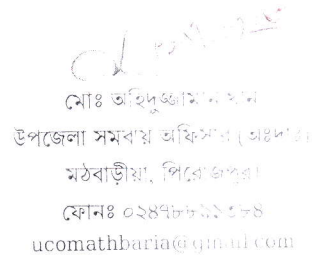 মোঃ অহিদুজ্জামান খান
উপজেলা সমবায় অফিসার (অঃদাঃ)
মঠবাড়ীয়া, পিরোজপুর।
ফোনঃ
ucomathbaria@gmail.com